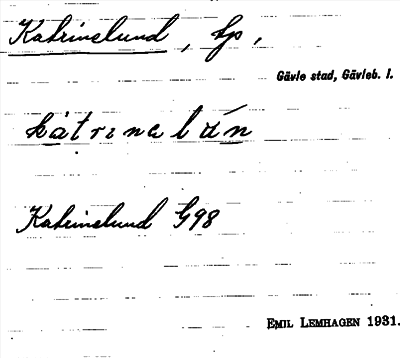 Katrinelund, lp,
Gävle stad, Gävleb. l.
Katrinelund G98
EMIL LEMHAGEN 1931.